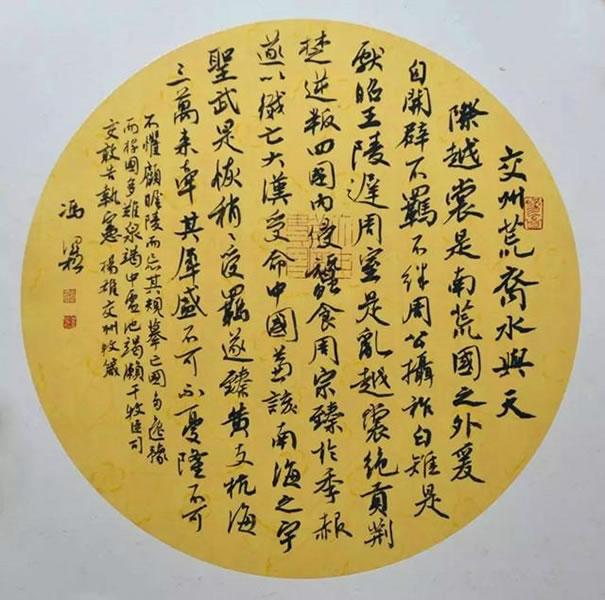 交州荒裔水與天
際越裳是南荒國之外爰
自開辟不羈不絆周公攝祚白雉是
獻昭王陵遲周室是亂越裳絕貢荊
楚逆叛四國內侵蠶食周宗臻於季赧
遂以滅亡大漢受命中國兼該南海之宇
聖武是恢稍〻受羈遂臻黃支杭海
三萬來牽其犀盛不可不憂隆不可
不懼顧瞻陵而忘其規摹亡國多逸豫
而存國多難泉竭中虛池竭瀨干牧臣司
交敢告執憲 楊雄交州牧箴
冯